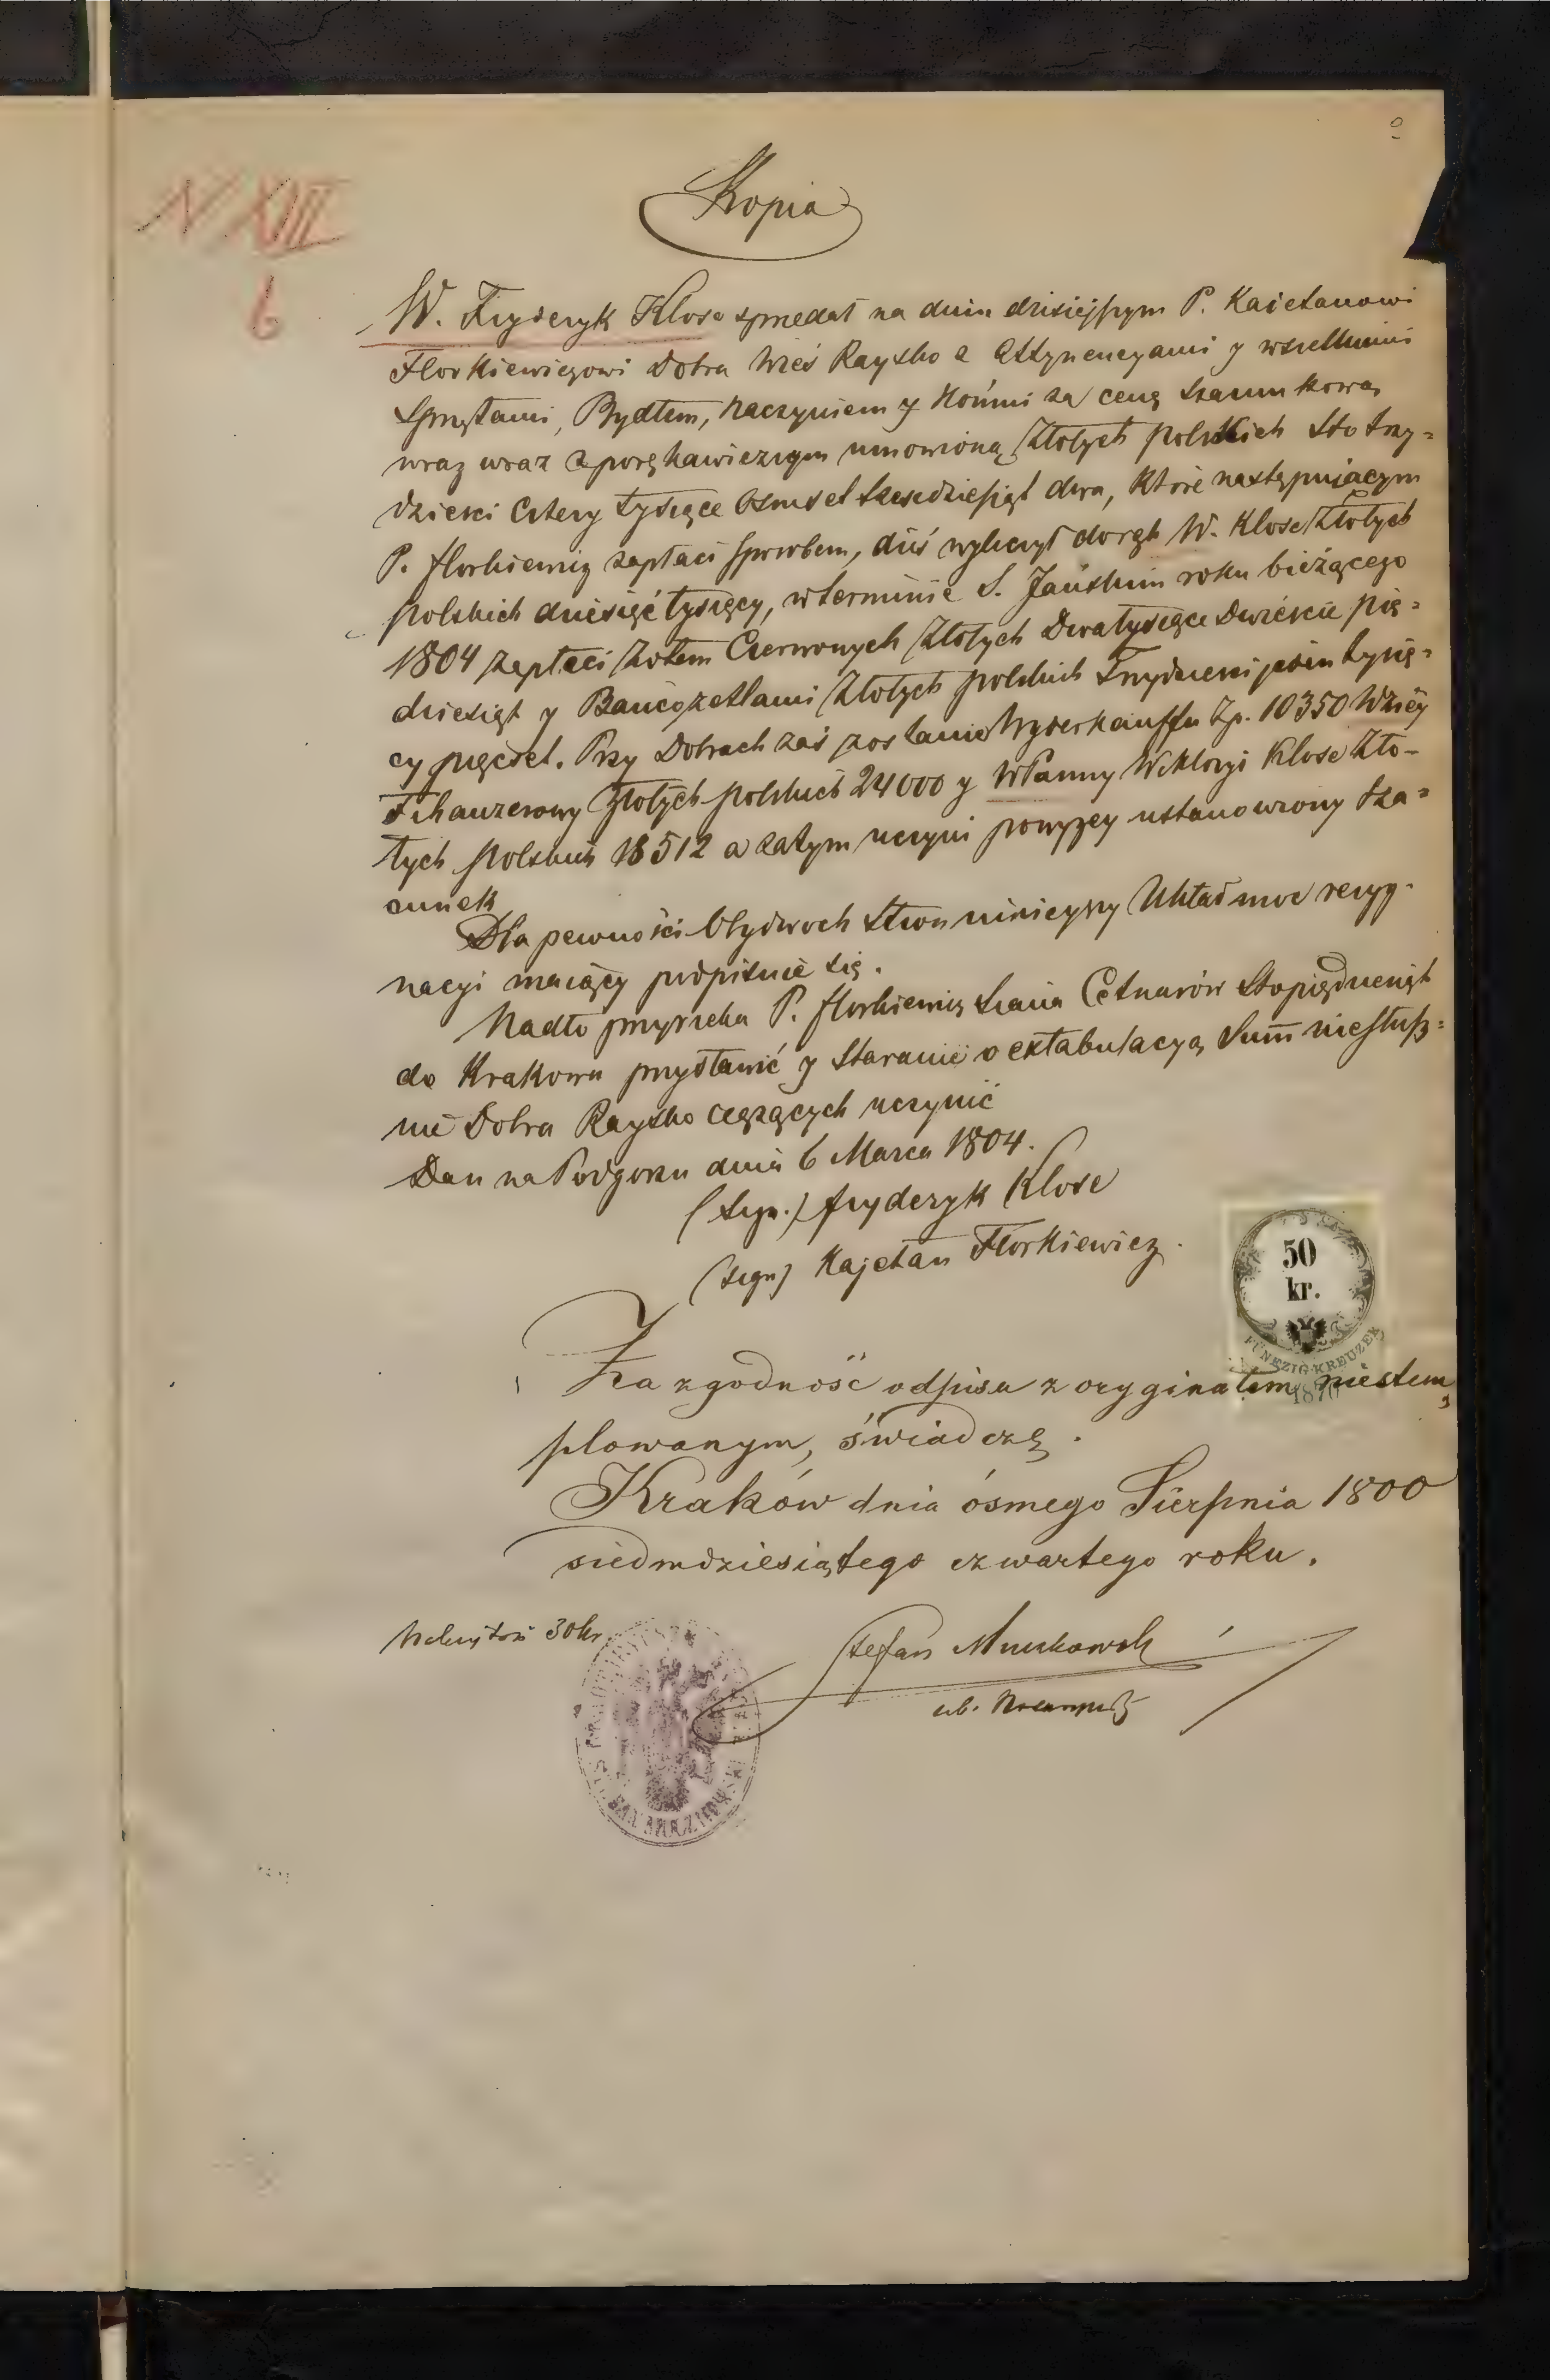 N XIII
6
Kopia
W. Fryderyk Klose sprzedał na dniu dzisiejszym P. Kaietanowi
Florkiewiczowi Dobra Wieś Raysko z Attynencyami y wszelkiemi
Sprzętami, Bydłem, naczyniem y Końmi za cenę szacunkową
wraz wraz z porękawicznym umowioną Złotych polskich Sto trzy=
dzieści cztery tysięce Osmset szesedziesiąt dwa, które następuiacym
P. florkiewicz zapłaci sposobem, dziś wyliczył do rąk W. Klose Złotych
polskich dziesięć tysięcy, w terminie S. Jańskim roku bieżącego
1804 zapłaci Zotem Czerwonych Złotych Dwa tysięce Dwieście pię=
dziesiąt y Bancozetlami Złotych polskich Trzydzieści jeden tysię=
cy pięćset. Przy Dobrach zaś zostanie Wyderkauffu Zp. 10350 Wziey
Złotych polskich 24000 y W Panny Wiktoryi Klose Zło-
tych polskich 18512 a zatym uczyni powyzey ustanowiony sza=
cunek
Dla pewności Obydwoch Stron ninieyszy Układ moc rezyg-
nacyi maiący podpisuie się.
Nadto przyrzeka P. florkiewicz siana Cetnarów Stopiędziesiąt
do Krakowa przystawić y Staranie o extabulacyą Summ niesłusz=
nie Dobra Raysko ciężących uczynić
Dan na Podgorzu dnia 6 Marca 1804.
(sign.) fryderyk Klose
(sign) Kajetan Florkiewicz.
50
kr.
FÜNFZIG KREUZER
1870
Za zgodność odpisu z oryginałem niestem=
plowanym, świadczę.
Kraków dnia ósmego Sierpnia 1800
siedmdziesiątego czwartego roku.
Należytość 30 kr.
Stefan Muczkowski